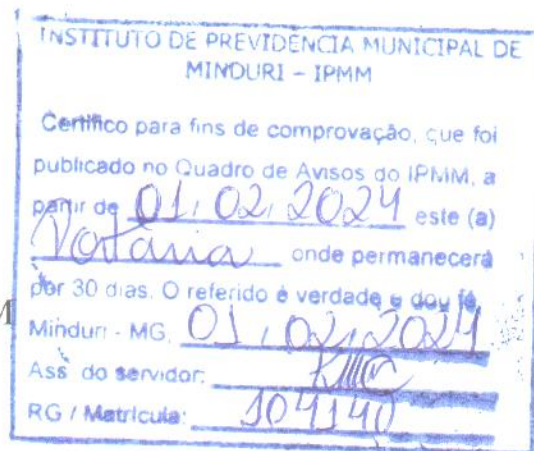 INSTITUTO DE PREVIDÊNCIA MUNICIPAL DE
MINDURI – IPMM
Certifico para fins de comprovação, que foi
publicado no Quadro de Avisos do IPMM, a
partir de 01, 02, 2024 este (a)
Portaria onde permanecerá
por 30 dias. O referido é verdade e dou fé.
Minduri - MG, 01, 02, 2024
Ass do servidor:
RG / Matrícula: 104140
M